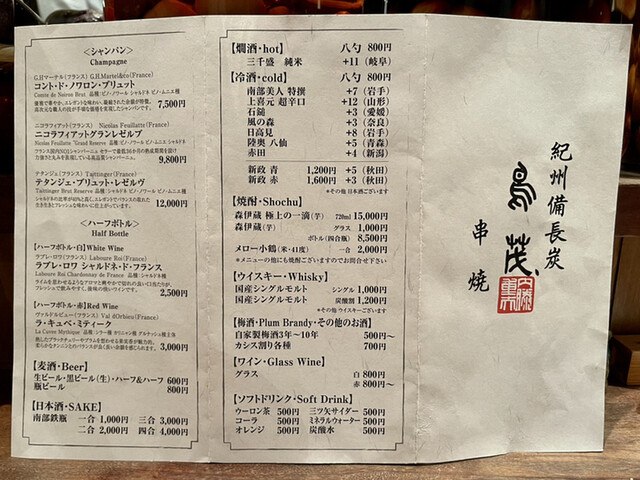 <シャンパン>
Champagne
G.Hマーテル(フランス) G.H.Martel&co(France)
コント・ド・ノワロン・ブリュット
Comte de Noiron Brut 品種:ピノ・ノワール シャルドネ ピノ・ムニエ種
7,500円
ニコラフィアット(フランス) Nicolas Feuillatte(France)
ニコラフィアットグランレゼルブ
Nicolas Feuillatte "Grand Reserve 品種:ピノ・ノワール ピノ・ムニエ シャルドネ
9,800円
テタンジェ(フランス) Taittinger(France)
テタンジェ・ブリュット・レゼルヴ
Taittinger Brut Reserve 品種:シャルドネ ピノ・ノワール ピノ・ムニエ種
12,000円
<ハーフボトル>
Half Bottle
【ハーフボトル・白】White Wine
ラブレ・ロワ(フランス) Laboure Roi(France)
ラブレ・ロワ シャルドネ・ド・フランス
Laboure Roi Chardonnay de France 品種:シャルドネ種
2,500円
【ハーフボトル・赤】Red Wine
ヴァルドルビュー(フランス) Val dOrbieu(France)
ラ・キュベ・ミティーク
3,000円
【麦酒・Beer】
生ビール・黒ビール(生)・ハーフ&ハーフ 600円
瓶ビール 800円
【日本酒・SAKE】
南部鉄瓶 一合 1,000円 三合 3,000円
二合 2,000円 四合 4,000円
【燗酒・hot】 八勺 800円
三千盛 純米 +11(岐阜)
【冷酒・cold】 八勺 800円
南部美人 特撰 +7(岩手)
上喜元 超辛口 +12(山形)
石鎚 +3(愛媛)
風の森 +3(奈良)
日高見 +8(岩手)
陸奥 八仙 +5(青森)
赤田 +4(新潟)
新政 青 1,200円 +5(秋田)
新政 赤 1,600円 +3(秋田)
*その他 日本酒ございます
【焼酎・Shochu】
森伊蔵 極上の一滴(芋) 720ml 15,000円
森伊蔵(芋) グラス 1,000円
ボトル(四合瓶) 8,500円
メロー小鶴(米・41度) 一合 2,000円
*メニューの他にも焼酎ございますのでお問合せ下さい
【ウイスキー・Whisky】
国産シングルモルト シングル 1,000円
国産シングルモルト 炭酸割 1,200円
*その他 ウイスキーございます
【梅酒・Plum Brandy・その他のお酒】
自家製梅酒3年〜10年 500円〜
カシス割り各種 700円
【ワイン・Glass Wine】
グラス 白 800円
赤 800円〜
【ソフトドリンク・Soft Drink】
ウーロン茶 500円 三ツ矢サイダー 500円
コーラ 500円 ミネラルウォーター 500円
オレンジ 500円 炭酸水 500円
紀州備長炭
鳥茂
串焼